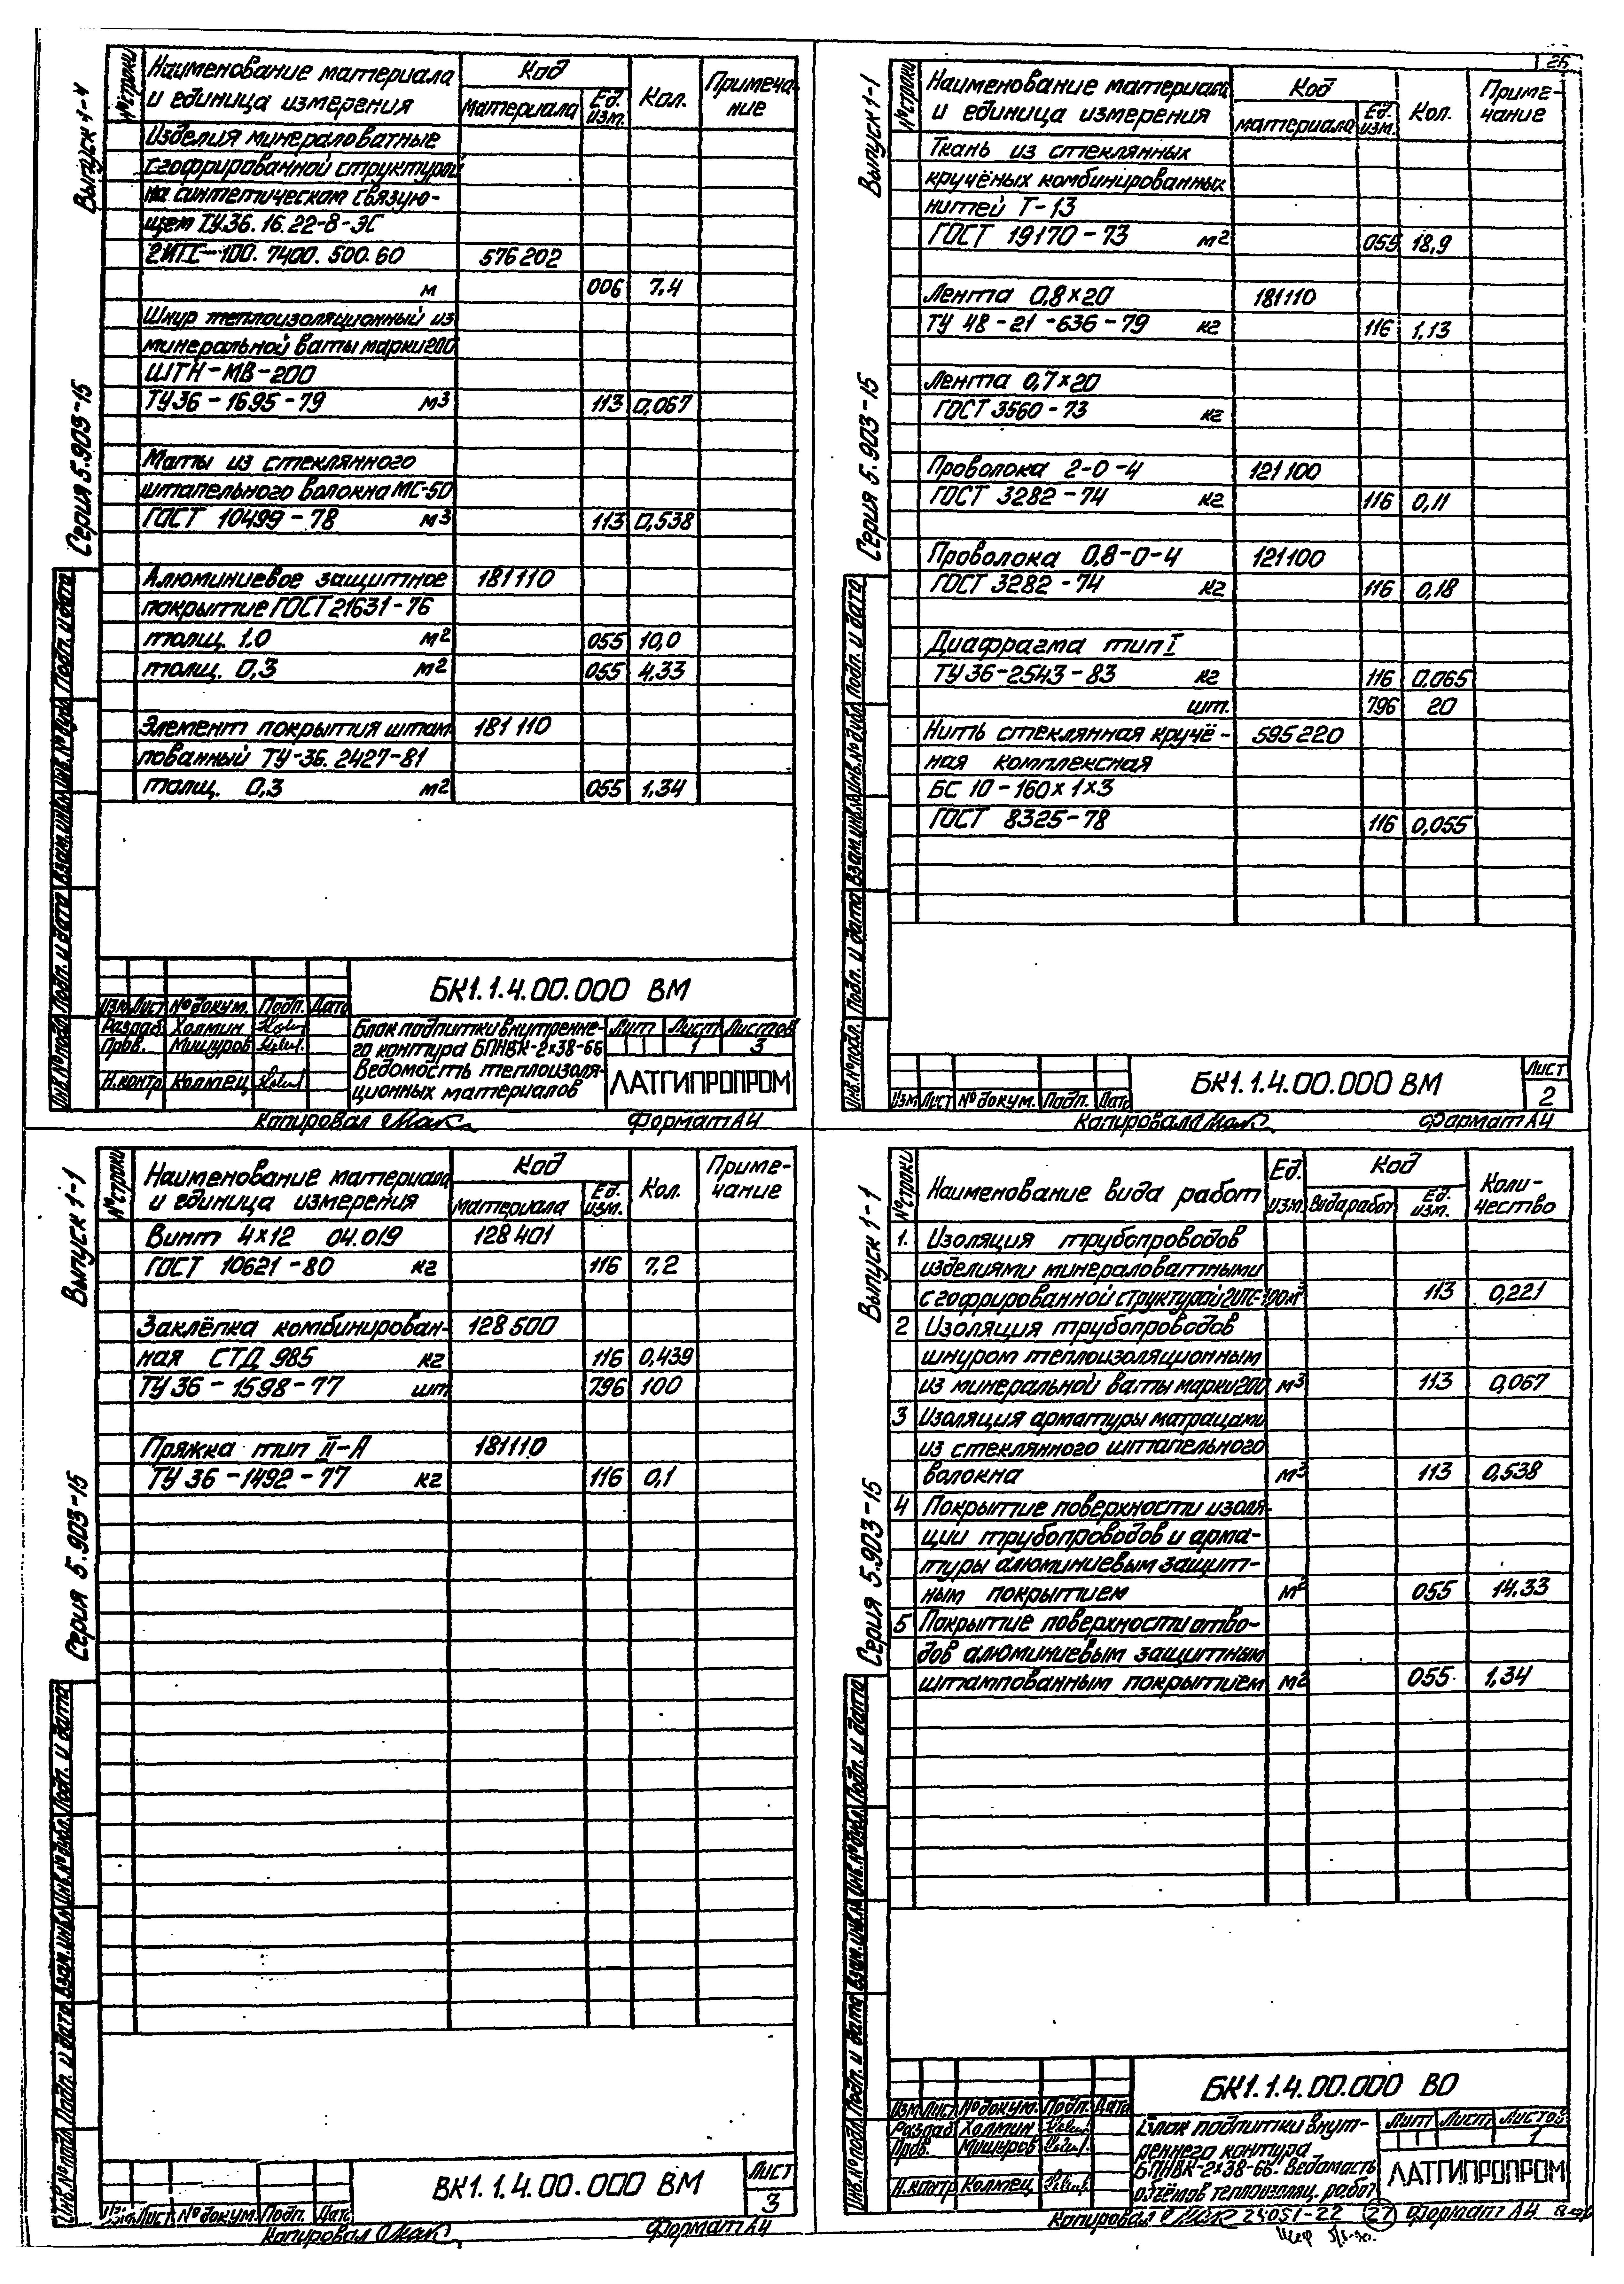 Выпуск 1-4
Серия 5.903-15
№ строки
Наименование материала и единица измерения
Код
материала
Ед. изм.
Кол.
Примечание
Изделия минераловатные
с гофрированной структурой
на синтетическом связую-
щем ТУ.36.16.22-8-ЭС
2ИГС-100.7400.500.60 576202
м 006 7,4
Шнур теплоизоляционный из
минеральной ваты марки 200
ШТН-МВ-200
ТУ36-1695-79 м3 113 0,067
Маты из стеклянного
штапельного волокна МС-50
ГОСТ 10499-78 м3 113 0,538
Алюминиевое защитное 181110
покрытие ГОСТ 21631-76
толщ. 1.0 м2 055 10,0
толщ. 0,3 м2 055 4,33
Элемент покрытия штам 181110
пованный ТУ-36.2427-81
толщ. 0,3 м2 055 1,34
Инв.№ подл. Подп. и дата Взам.инв.№ Инв.№ дубл. Подп. и дата
БК1.1.4.00.000 ВМ
Изм Лист № докум. Подп. Дата
Разраб Холмин
Пров. Мишуров
Н.контр Колмец
Блок подпитки внутренне-
го контура БПНВК-2х38-66
Ведомость теплоизоля-
ционных материалов
Лит Лист Листов
1 3
ЛАТГИПРОПРОМ
Копировал Формат А4
26
Выпуск 1-1
Серия 5.903-15
№ строки
Наименование материала и единица измерения
Код
материала
Ед. изм.
Кол.
Приме-
чание
Ткань из стеклянных
кручёных комбинированных
нитей Т-13
ГОСТ 19170-73 м2 055 18,9
Лента 0,8х20 181110
ТУ 48-21-636-79 кг 116 1,13
Лента 0,7х20
ГОСТ 3560-73 кг
Проволока 2-0-4 121100
ГОСТ 3282-74 кг 116 0,11
Проволока 0,8-0-4 121100
ГОСТ 3282-74 кг 116 0,18
Диафрагма тип I
ТУ36-2543-83 кг 116 0.065
шт. 796 20
Нить стеклянная кручё- 595220
ная комплексная
БС 10-160х1х3
ГОСТ 8325-78 116 0,055
Инв.№ подл. Подп. и дата Взам.инв.№ Инв.№ дубл. Подп. и дата
Изм Лист № докум. Подп. Дата
БК1.1.4.00.000 ВМ
Лист
2
Копировал Формат А4
Выпуск 1-1
Серия 5.903-15
№ строки
Наименование материала и единица измерения
Код
материала
Ед. изм.
Кол.
Приме-
чание
Винт 4х12 04.019 128401
ГОСТ 10621-80 кг 116 7,2
Заклёпка комбинирован- 128500
ная СТД 985 кг 116 0,439
ТУ36-1598-77 шт 796 100
Пряжка тип II-А 181110
ТУ 36-1492-77 кг 116 0,1
Инв.№ подл. Подп. и дата Взам.инв.№ Инв.№ дубл. Подп. и дата
Изм Лист № докум. Подп. Дата
ВК1.1.4.00.000 ВМ
Лист
3
Копировал Формат А4
Выпуск 1-1
Серия 5.903-15
№ строки
Наименование вида работ
Ед. изм.
Код
вида работ
Ед. изм.
Коли-
чество
1. Изоляция трубопроводов
изделиями минераловатными
с гофрированной структурой 2ИГС-100 м3 113 0,221
2 Изоляция трубопроводов
шнуром теплоизоляционным
из минеральной ваты марки 200 м3 113 0,067
3 Изоляция арматуры матрацами
из стеклянного штапельного
волокна м3 113 0,538
4 Покрытие поверхности изоля-
ции трубопроводов и арма-
туры алюминиевым защит-
ным покрытием м2 055 14.33
5 Покрытие поверхности отво-
дов алюминиевым защитным
штампованным покрытием м2 055 1,34
Инв.№ подл. Подп. и дата Взам.инв.№ Инв.№ дубл. Подп. и дата
БК1.1.4.00.000 ВО
Изм Лист № докум. Подп. Дата
Разраб Холмин
Пров. Мишуров
Н.контр Колмец
Блок подпитки внут-
реннего контура
БПНВК-2х38-66. Ведомость
объёмов теплоизоляц. работ
Лит Лист Листов
1
ЛАТГИПРОПРОМ
Копировал 24051-22 27 Формат А4